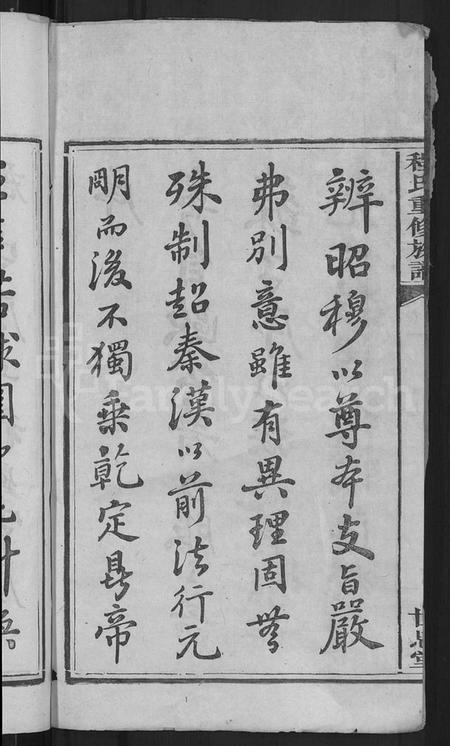 辨昭穆以尊本支旨嚴
弗別意雖有異理固無
殊制起秦漢以前法行元
明而後不獨乘乾定鼎帝
程氏重修族譜
FamilySearch